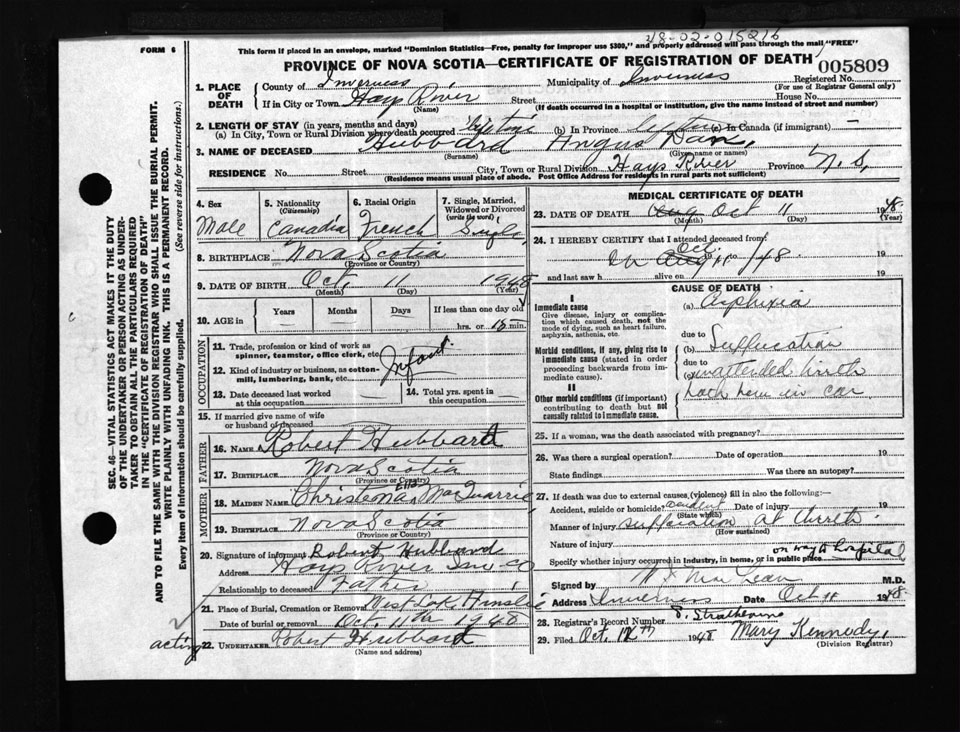 48-02-015216
FORM 6
This form if placed in an envelope, marked "Dominion Statistics—Free, penalty for improper use $300," and properly addressed will pass through the mail "FREE"
PROVINCE OF NOVA SCOTIA—CERTIFICATE OF REGISTRATION OF DEATH
005809
1. PLACE OF DEATH
County of Inverness Municipality of Inverness Registered No.
(For use of Registrar General only)
If in City or Town Hays River Street House No.
(Name) (If death occurred in a hospital or institution, give the name instead of street and number)
2. LENGTH OF STAY (in years, months and days)
(a) In City, Town or Rural Division where death occurred lifetime (b) In Province (c) In Canada (if immigrant) —
3. NAME OF DECEASED Hubbard Angus Dan,
(Surname) (Given name or names)
RESIDENCE No. Street City, Town or Rural Division Hays River Province N.S,
(Residence means usual place of abode. Post Office Address for residents in rural parts not sufficient)
4. Sex
Male
5. Nationality (Citizenship)
Canadia
6. Racial Origin
French
7. Single, Married, Widowed or Divorced (write the word)
Single
8. BIRTHPLACE Nova Scotia
(Province or Country)
9. DATE OF BIRTH Oct. 11 1948
(Month) (Day) (Year)
10. AGE in Years Months Days If less than one day old
hrs. or 15 min.
OCCUPATION
11. Trade, profession or kind of work as spinner, teamster, office clerk, etc.
Infant.
12. Kind of industry or business, as cotton-mill, lumbering, bank, etc.
13. Date deceased last worked at this occupation
14. Total yrs. spent in this occupation
15. If married give name of wife or husband of deceased
FATHER
16. NAME Robert Hubbard
17. BIRTHPLACE Nova Scotia
(Province or Country)
MOTHER
18. MAIDEN NAME Christena Ella MacQuarrie
19. BIRTHPLACE Nova Scotia
(Province or Country)
20. Signature of informant Robert Hubbard
Address Hays River Inv. Co
Relationship to deceased Father
21. Place of Burial, Cremation or Removal West Lake Ainslie
Date of burial or removal Oct. 11th 1948
acting
22. UNDERTAKER Robert Hubbard
(Name and address)
MEDICAL CERTIFICATE OF DEATH
23. DATE OF DEATH Aug Oct 11 1948
(Month) (Day) (Year)
24. I HEREBY CERTIFY that I attended deceased from
on Aug Oct. 11 to /48 19
and last saw h alive on 19
CAUSE OF DEATH
I
Immediate cause
Give disease, injury or complication which caused death, not the mode of dying, such as heart failure, asphyxia, asthenia, etc.
(a) Asphixia
due to
Morbid conditions, if any, giving rise to immediate cause (stated in order proceeding backwards from immediate cause).
(b) Suffucation
due to
(c) unattended birth
II
Other morbid conditions (if important) contributing to death but not causally related to immediate cause.
in car
25. If a woman, was the death associated with pregnancy?
26. Was there a surgical operation? Date of operation 19
State findings Was there an autopsy?
27. If death was due to external causes, (violence) fill in also the following:
Accident, suicide or homicide? accident Date of injury 19
(State which)
Manner of injury suffucation at birth
(How sustained)
Nature of injury
Specify whether injury occurred in industry, in home, or in public place on way to hospital
Signed by MacLean M.D.
Address Inverness Date Oct 11 1948
28. Registrar's Record Number
29. Filed Oct. 12th 1948 Mary Kennedy,
(Division Registrar)
SEC. 46—VITAL STATISTICS ACT MAKES IT THE DUTY
OF THE UNDERTAKER OR PERSON ACTING AS UNDER-
TAKER TO OBTAIN ALL THE PARTICULARS REQUIRED
IN THE "CERTIFICATE OF REGISTRATION OF DEATH"
AND TO FILE THE SAME WITH THE DIVISION REGISTRAR WHO SHALL ISSUE THE BURIAL PERMIT.
WRITE PLAINLY WITH UNFADING INK. THIS IS A PERMANENT RECORD.
Every item of information should be carefully supplied. (See reverse side for instructions.)